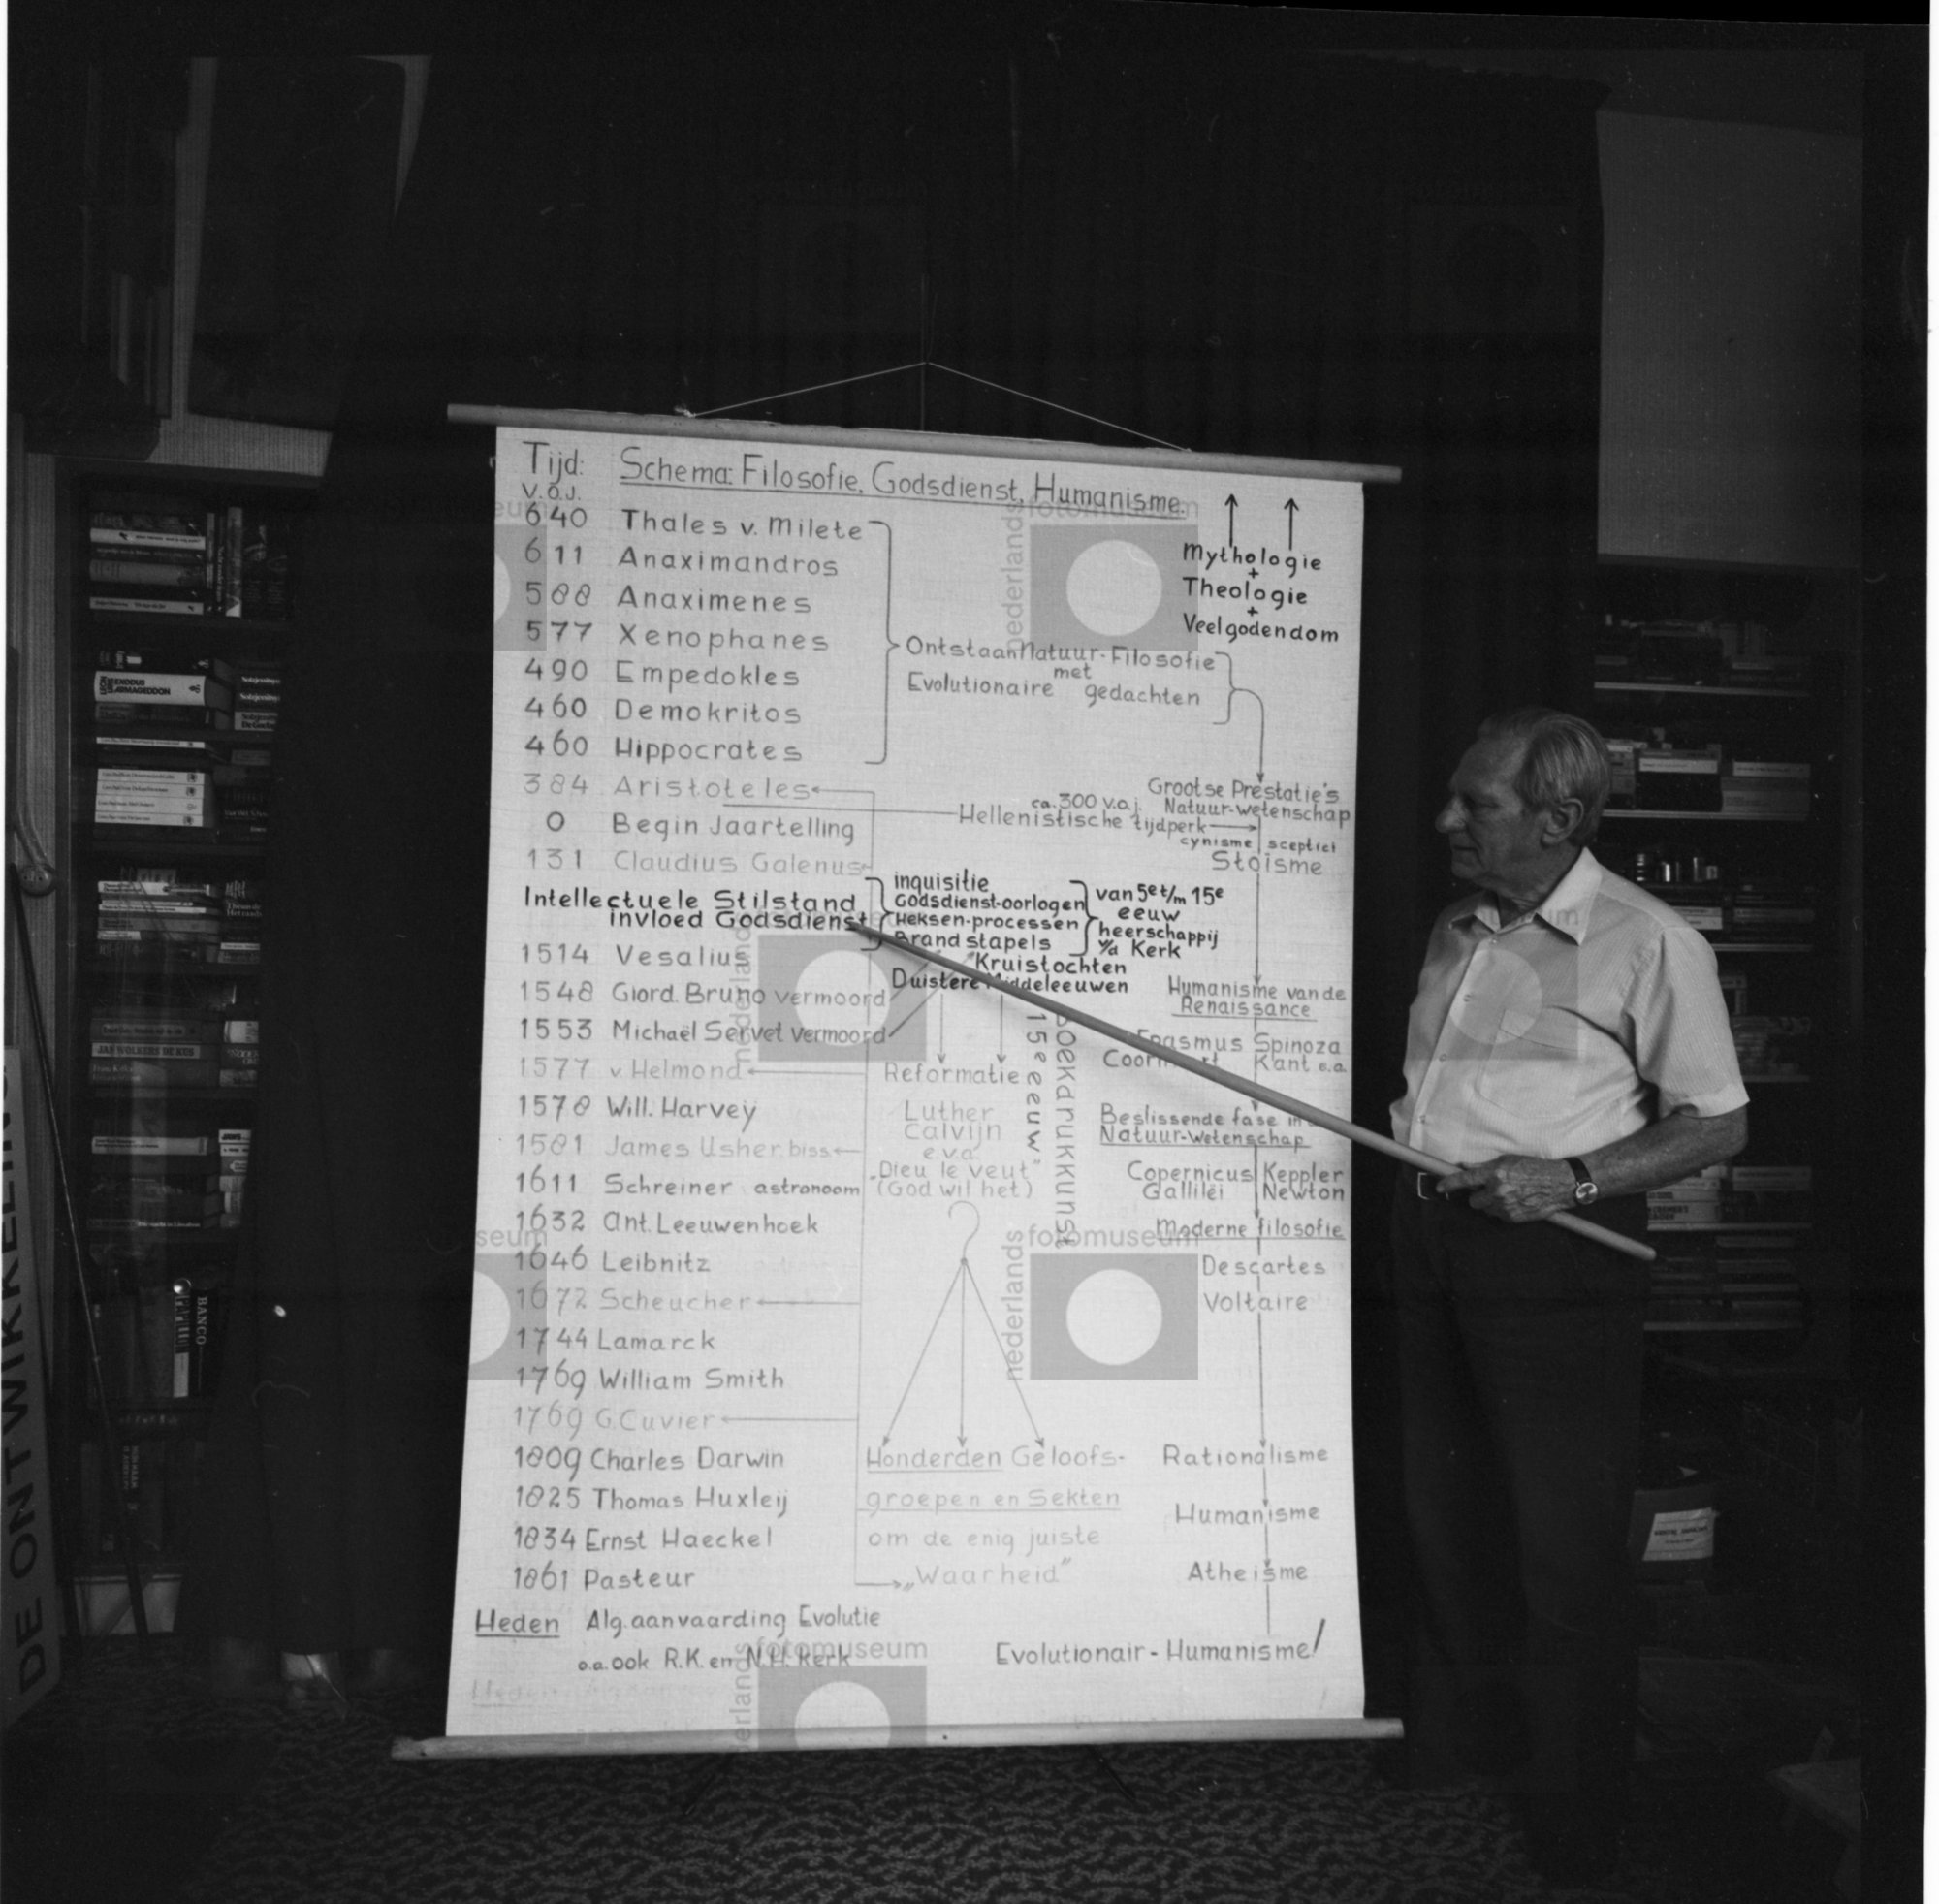 Tijd: Schema: Filosofie, Godsdienst, Humanisme.
v.o.j.
640 Thales v. Milete
611 Anaximandros
588 Anaximenes
577 Xenophanes
490 Empedokles
460 Demokritos
460 Hippocrates
384 Aristoteles
0 Begin Jaartelling
131 Claudius Galenus
Intellectuele Stilstand
invloed Godsdienst
1514 Vesalius
1548 Giord. Bruno vermoord
1553 Michaël Servet vermoord
1577 v. Helmond
1578 Will. Harvey
1581 James Usher. biss
1611 Schreiner astronoom
1632 Ant. Leeuwenhoek
1646 Leibnitz
1672 Scheucher
1744 Lamarck
1769 William Smith
1769 G. Cuvier
1809 Charles Darwin
1825 Thomas Huxleij
1834 Ernst Haeckel
1861 Pasteur
Heden Alg. aanvaarding Evolutie
o.a. ook R.K. en N.H. Kerk
Mythologie
+
Theologie
+
Veelgodendom
Ontstaan Natuur-Filosofie
met
Evolutionaire gedachten
Grootse Prestatie's
Natuur-wetenschap
ca. 300 v.o.j.
Hellenistische tijdperk
cynisme sceptici
Stoïsme
inquisitie
Godsdienst-oorlogen
Heksen-processen
Brandstapels
van 5e t/m 15e
eeuw
heerschappij
v/d Kerk
Kruistochten
Duistere Middeleeuwen
Reformatie
Luther
Calvijn
e.v.a.
"Dieu le veut"
(God wil het)
15e eeuw
Boekdrukkunst
?
Honderden Geloofs-
groepen en Sekten
om de enig juiste
„Waarheid"
Humanisme van de
Renaissance
Erasmus Spinoza
Kant e.a.
Beslissende fase in
Natuur-wetenschap
Copernicus Keppler
Galliléi Newton
Moderne filosofie
Descartes
Voltaire
Rationalisme
Humanisme
Atheïsme
Evolutionair-Humanisme!
DE ONTWIKKELING
EXODUS
ARMAGEDDON
JAN WOLKERS DE KUS
BANCO
nederlands fotomuseum
nederlands fotomuseum
nederlands fotomuseum